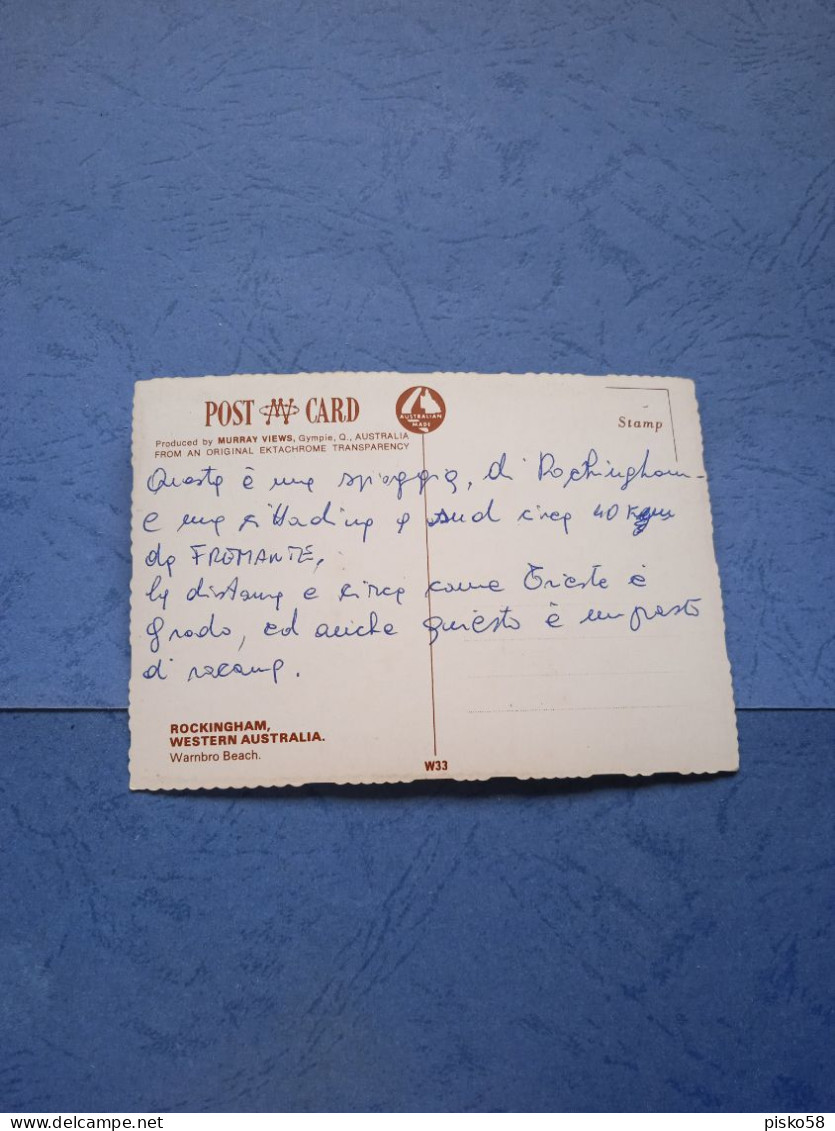 POST CARD
AUSTRALIAN MADE
Stamp
Produced by MURRAY VIEWS, Gympie, Q., AUSTRALIA
FROM AN ORIGINAL EKTACHROME TRANSPARENCY
Questa è una spiaggia, di Rockingham
e una cittadina a sud circa 40 Kgm
da FREMANTE,
la distanza e circa come Trieste è
grado, ed anche questo è un posto
di vacanz.
ROCKINGHAM,
WESTERN AUSTRALIA.
Warnbro Beach.
W33
delcampe.net
pisko58